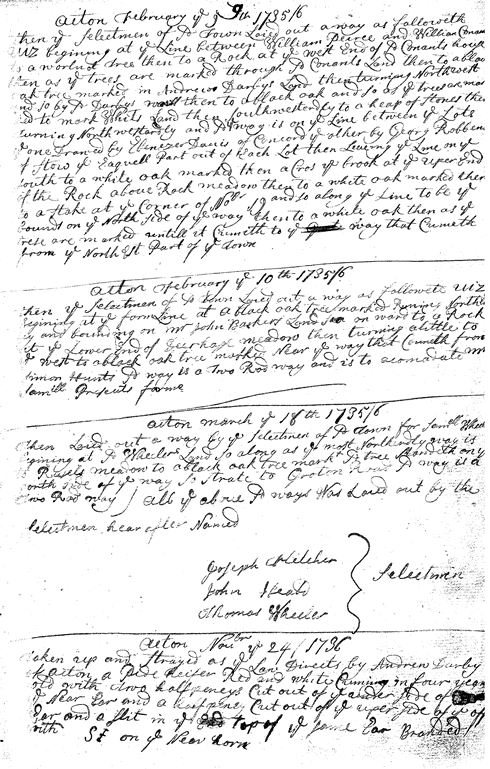 Acton February ye 9th 1735/6
then ye Selectmen of sd Town Laied out a way as followeth
VIZ begining at ye Line between William Peirce and William Conant
is a Wornut Tree then to a Rock at ye West End of sd Conants house
then as ye trees are marked through sd Conants Land then to a black
oak tree marked in Andrew Darbys Land then turning Northwest
and so by sd Darbys then to a black oak and so as ye trees are mar
to mark Whits Land then Southwestardly to a heap of Stones then
turning Northwestardly and sd way is on ye Line between ye Lots
one Drawed by Ebenezer Davis of Concord ye other by Georg Robbens
of Stow ye Eaquell Part out of Each Lot then Leaving ye Line
South to a white oak marked then a Cros ye brook at ye uper End
of the Rock above Rock meadow then to a white oak marked then
to a Stake at ye Corner of Nobr 19 and so along ye Line to be ye
bounds on ye North Side of ye way then to a white oak then as ye
trese are marked untill it Cumeth to ye way that Cumeth
from ye North Est Part of ye Town
Acton February ye 10th 1735/6
then ye Selectmen of sd Town Laied out a way as followeth VIZ
Begining at ye Line at a black oak tree marked Runing Northerly
and bounding on mr John Barkers Land on ward to a Rock
at ye Lower End of meadow then turning alittle to
ye west to a black oak tree marked Near ye way that Cumeth from
Simon Hunts sd way is a Two Rod way and is to acomadate mr
Samll Prescots farme
Acton march ye 18th 1735/6
then Laied out a way by ye Selectmen of sd Town for Samll Wheeler
begining at sd Wheelers Land so along as ye most Northardly way is
meadow to a black oak tree markd sd tree Standeth on ye
North Side of ye way so Strate to Groton Road sd way is a
Two Rod way All ye above sd ways Was Laied out by the
Selectmen hear after Named
Joseph Fletcher
John Heald
Thomas Wheeler
Selectmen
Acton Nobr ye 24 / 1736
Taken up and Strayed as ye Law Directs by Andrew Darby
of Acton a Pide Heifer Red and white Cuming in Four year
old with two halfpeneys Cut out of ye under Side of
ye Near Ear and a halfpeney Cut out of ye uper Side of ye of
Ear and a slit in ye top of ye Same Ear Branded
with S on ye Near horn